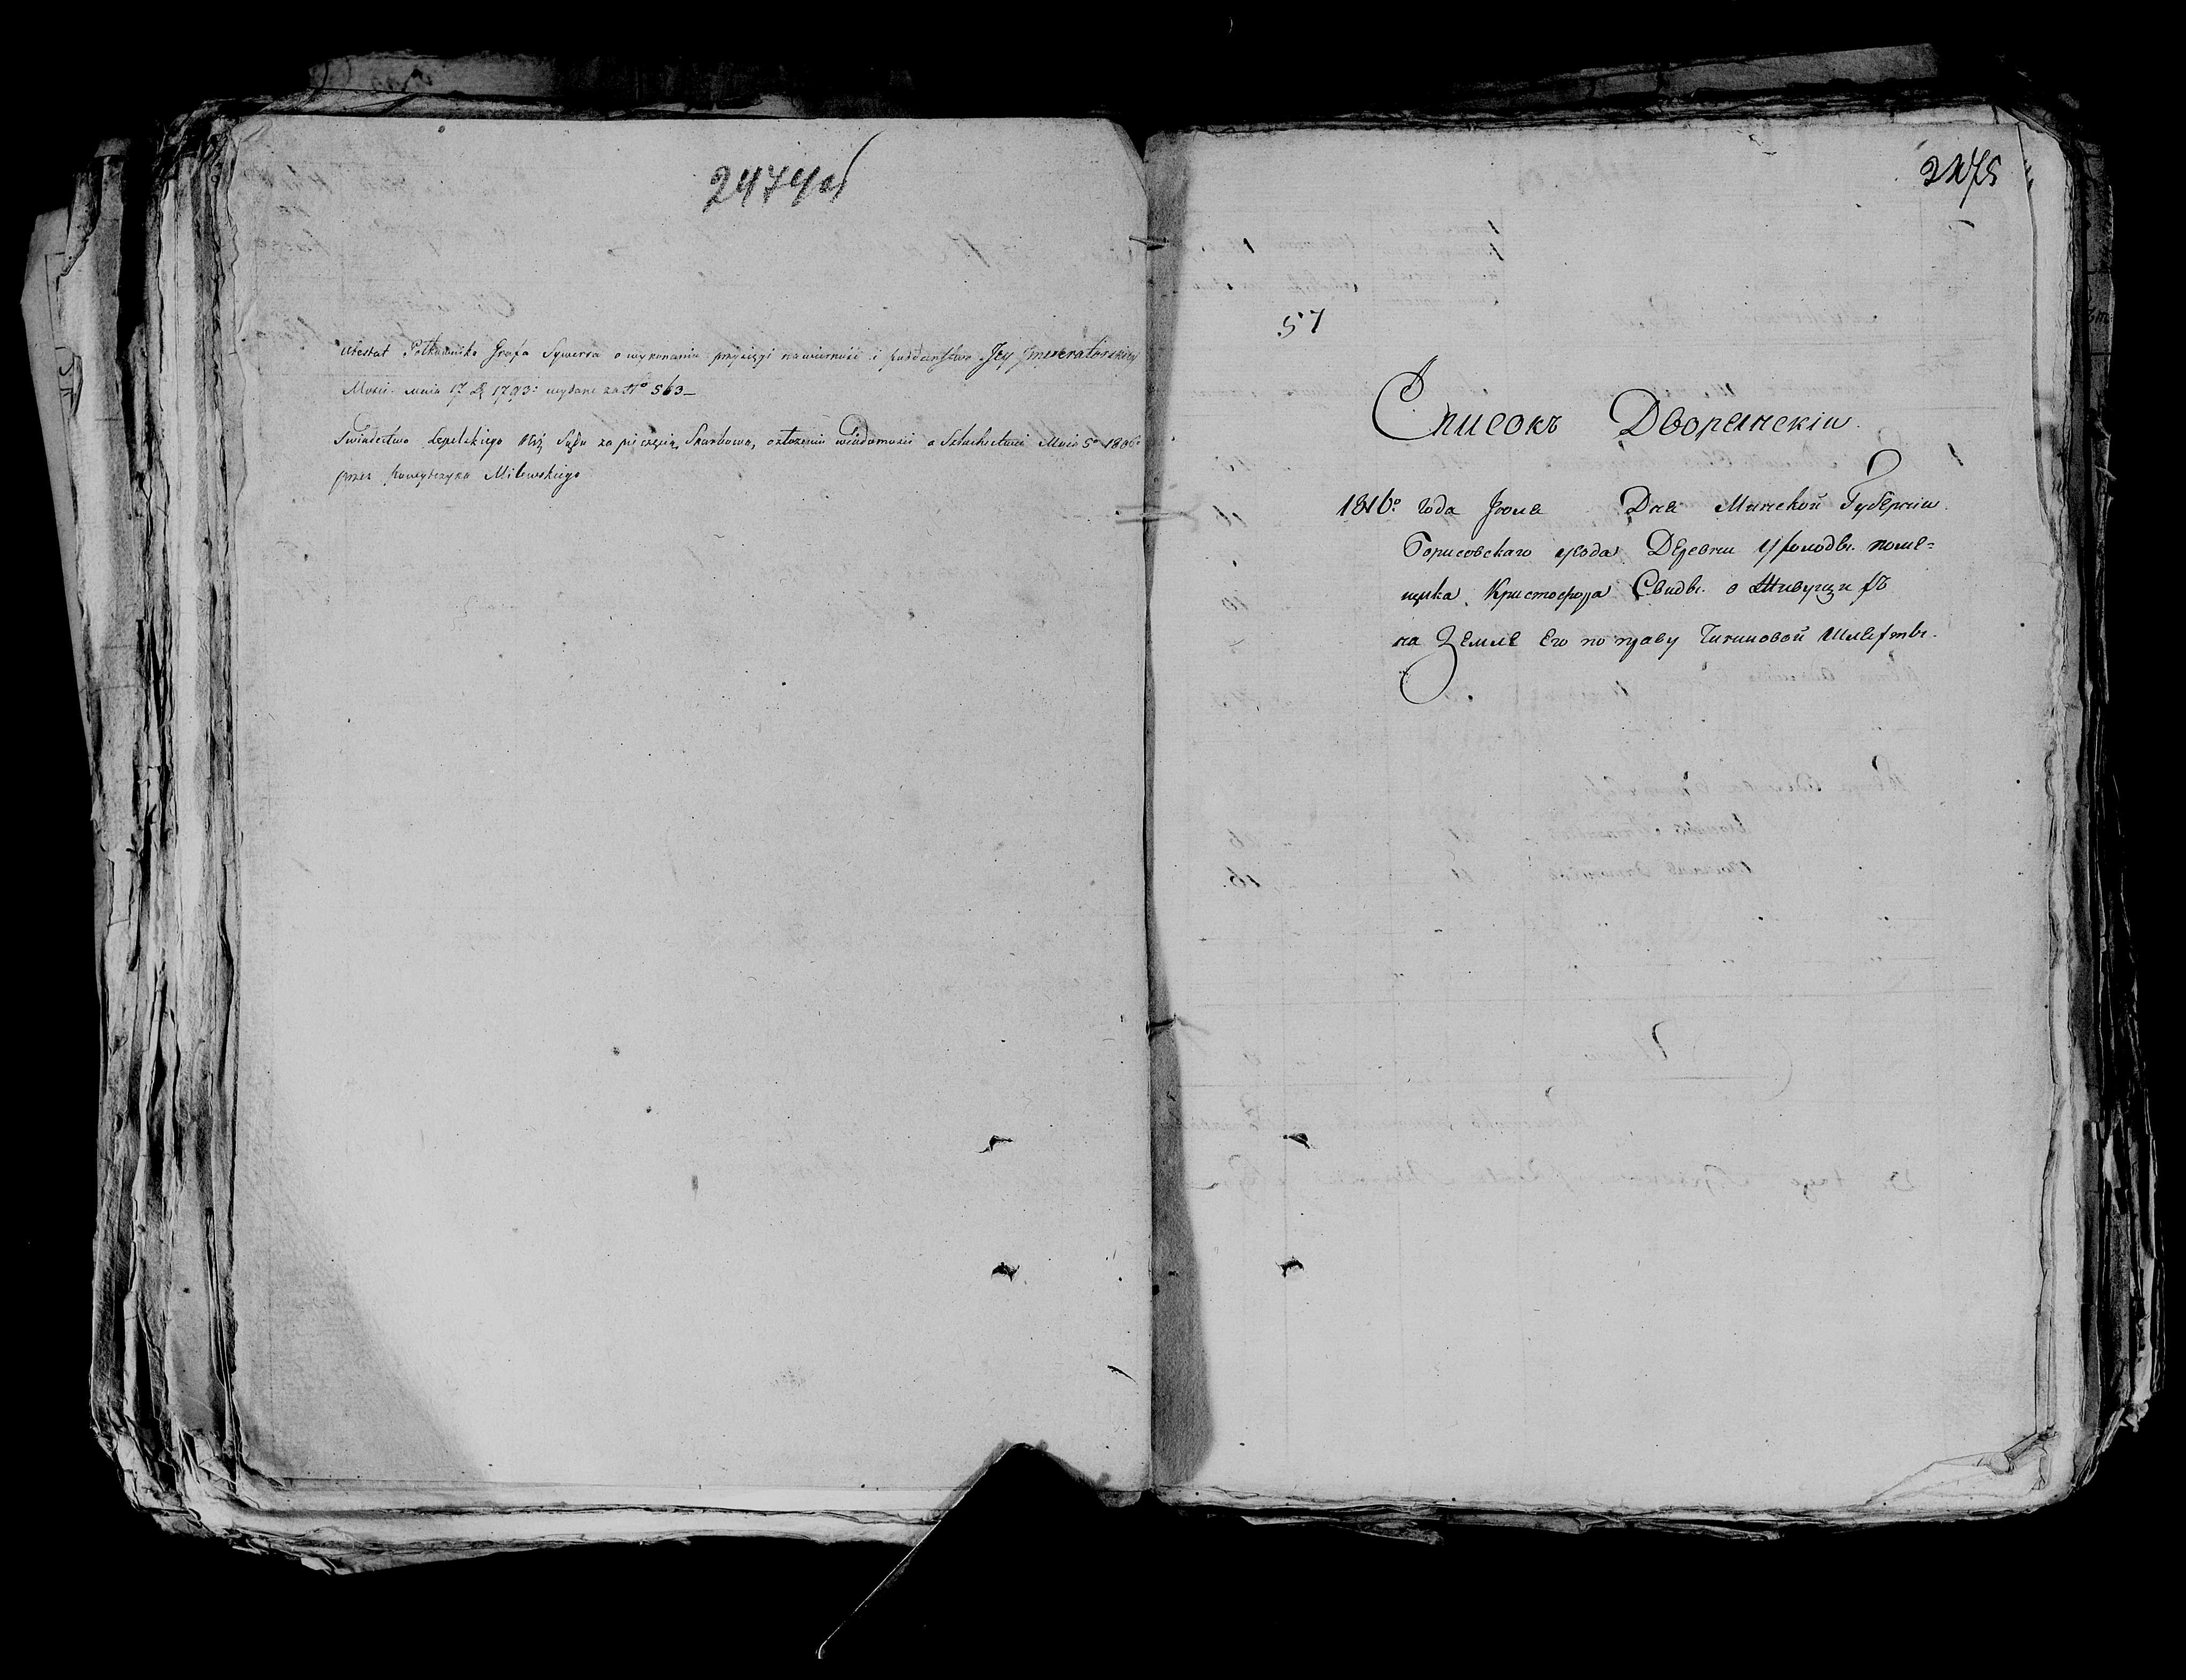 2474об
Atestat Półkownika Grafa Sywersa o wykonaniu przysięgi na wierność i poddaństwo Jey Jmperatorskiey
Mości Maia 17 D 1793: wydane za No 563 –
Swiadectwo Lepelskiego Niż Sądu za pieczęcią Skarbową, o złożeniu wiadomości o Szlachectwie Maia 5o 1806:
przez Kancylarzyka Milewskiego
2475
57
Списокъ Дворянскіи
1816o года Іюля Дня Минской Губерніи
Борисовскаго уезда Деревни поме=
щика Кристофора Свиды. о Живущихъ
на Земле Его по праву Чиншовой Шляхты.